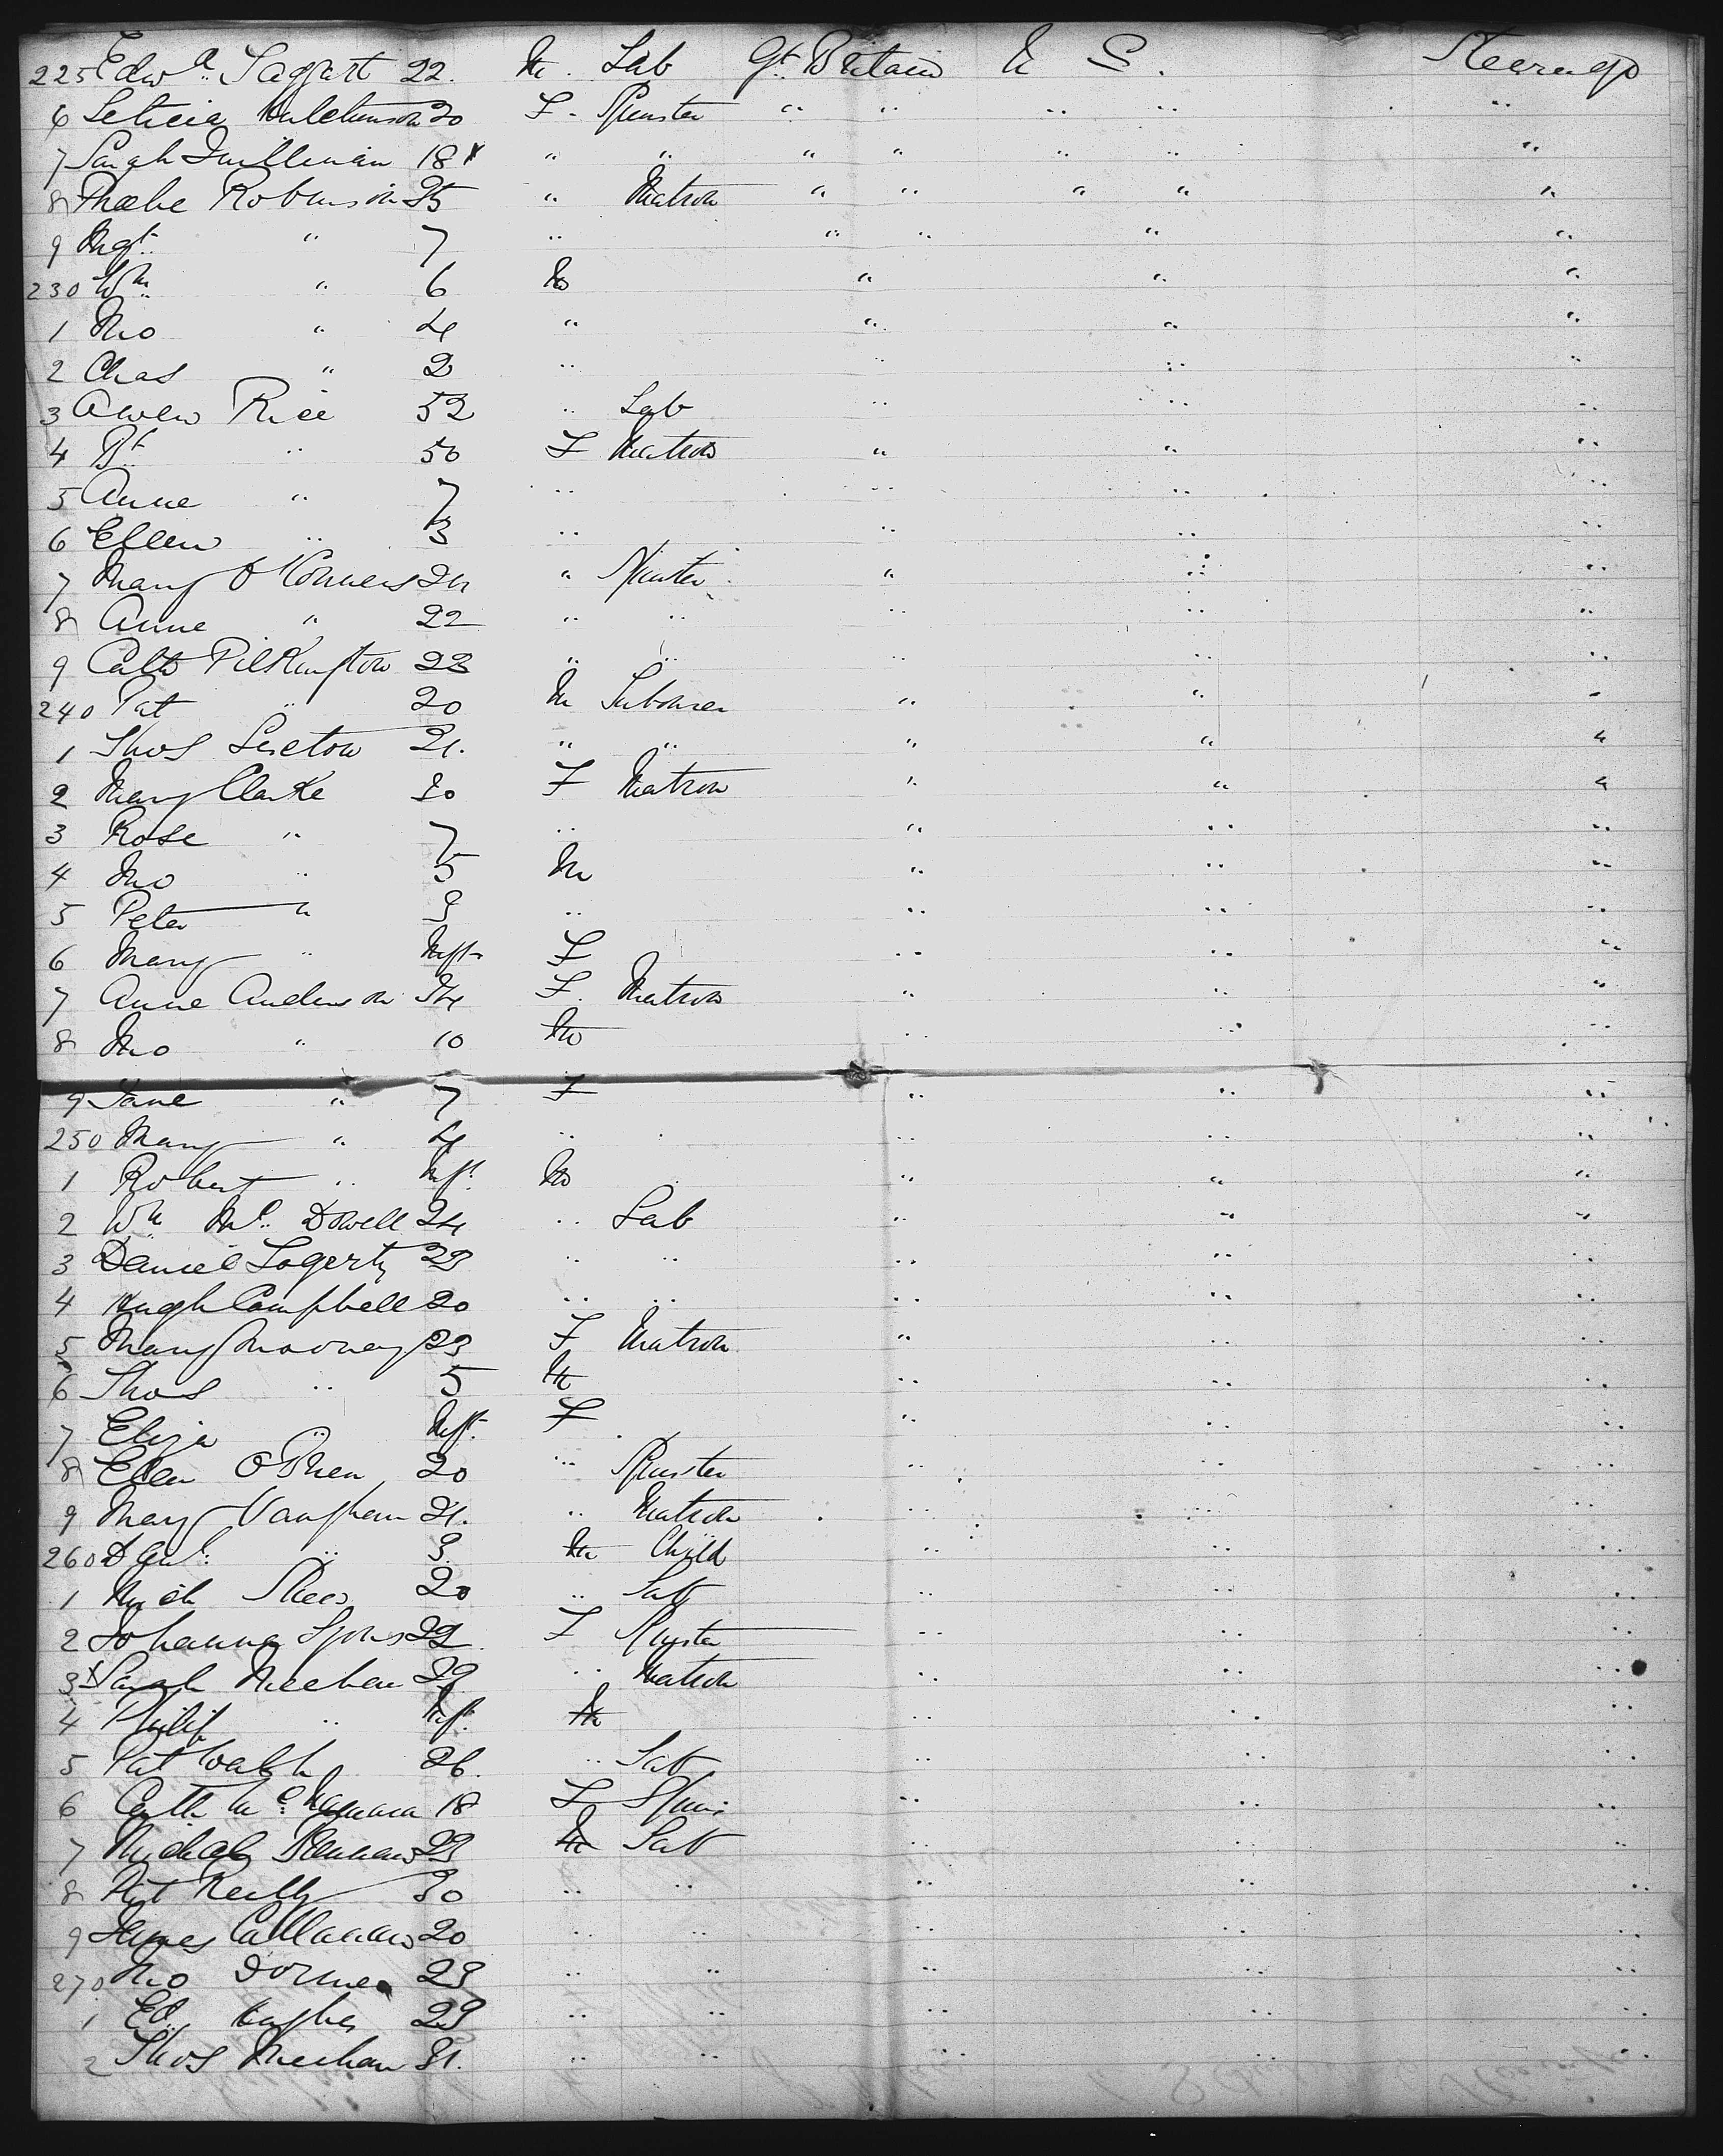 225 Edwd Taggart 22. M. Lab Gt Britain U S. Steerage
6 Leticia Hutchinson 20 F. Spinster " " " " "
7 Sarah 18 " " " " " " "
8 Phoebe Robinson 25 " Matron " " " " "
9 Mgt " 7 " " " " "
230 Wm " 6 M " " "
1 Jno " 4 " " " "
2 Chas " 2 " " " "
3 Owen Rice 52 " Lab " " "
4 Bt " 50 F Matron " " "
5 Anne " 7 " " " "
6 Ellen " 3 " " " "
7 Mary O'Conners 24 " Spinster " " "
8 Anne " 22 " " " " "
9 Cath Pilkington 23 " " " " "
240 Pat " 20 M Labourer " " "
1 Thos Sexton 21. " " " " "
2 Mary Clarke 30 F Matron " " "
3 Rose " 7 " " " "
4 Jno " 5 M " " "
5 Peter " 3 " " " "
6 Mary " Inft F " " "
7 Anne Anderson 34 F. Matron " " "
8 Jno " 10 M " " "
9 Jane " 7 F " " "
250 Mary " 4 " " " "
1 Robert " Inft M " " "
2 Wm Mc Dowell 24 " Lab " " "
3 Daniel Logerty 23 " " " " "
4 Hugh Campbell 20 " " " " "
5 Mary Mooney 23 F Matron " " "
6 Thos " 5 M " " "
7 Eliza " Inft F " " "
8 Ellen O'Brien 20 " Spinster " " "
9 Mary Vaughan 21. " Matron " " "
260 Danl " 3 M Child " " "
1 Mich Shea 20 " Lab " " "
2 Johanna Lyons 22 F Spinster " " "
3 Sarah Meehan 29 " Matron " " "
4 Philip " Inft M " " "
5 Pat Walsh 26. " Lab " " "
6 Cath McNamara 18 F Spins " " "
7 Michael Brennan 23 M Lab " " "
8 Pat Reilly 30 " " " " "
9 James Callanan 20 " " " " "
270 Jno 23 " " " " "
1 Ed. Hughes 23 " " " " "
2 Thos Meehan 31. " " " " "